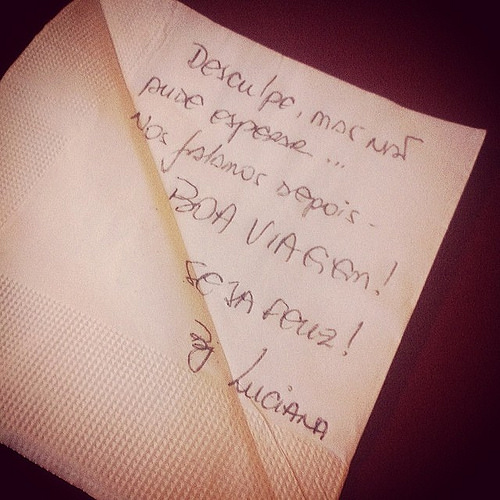 Desculpe, mas não
pude esperar...
Nos falamos depois.
BOA VIAGEM!
SEJA FELIZ!
By Luciana